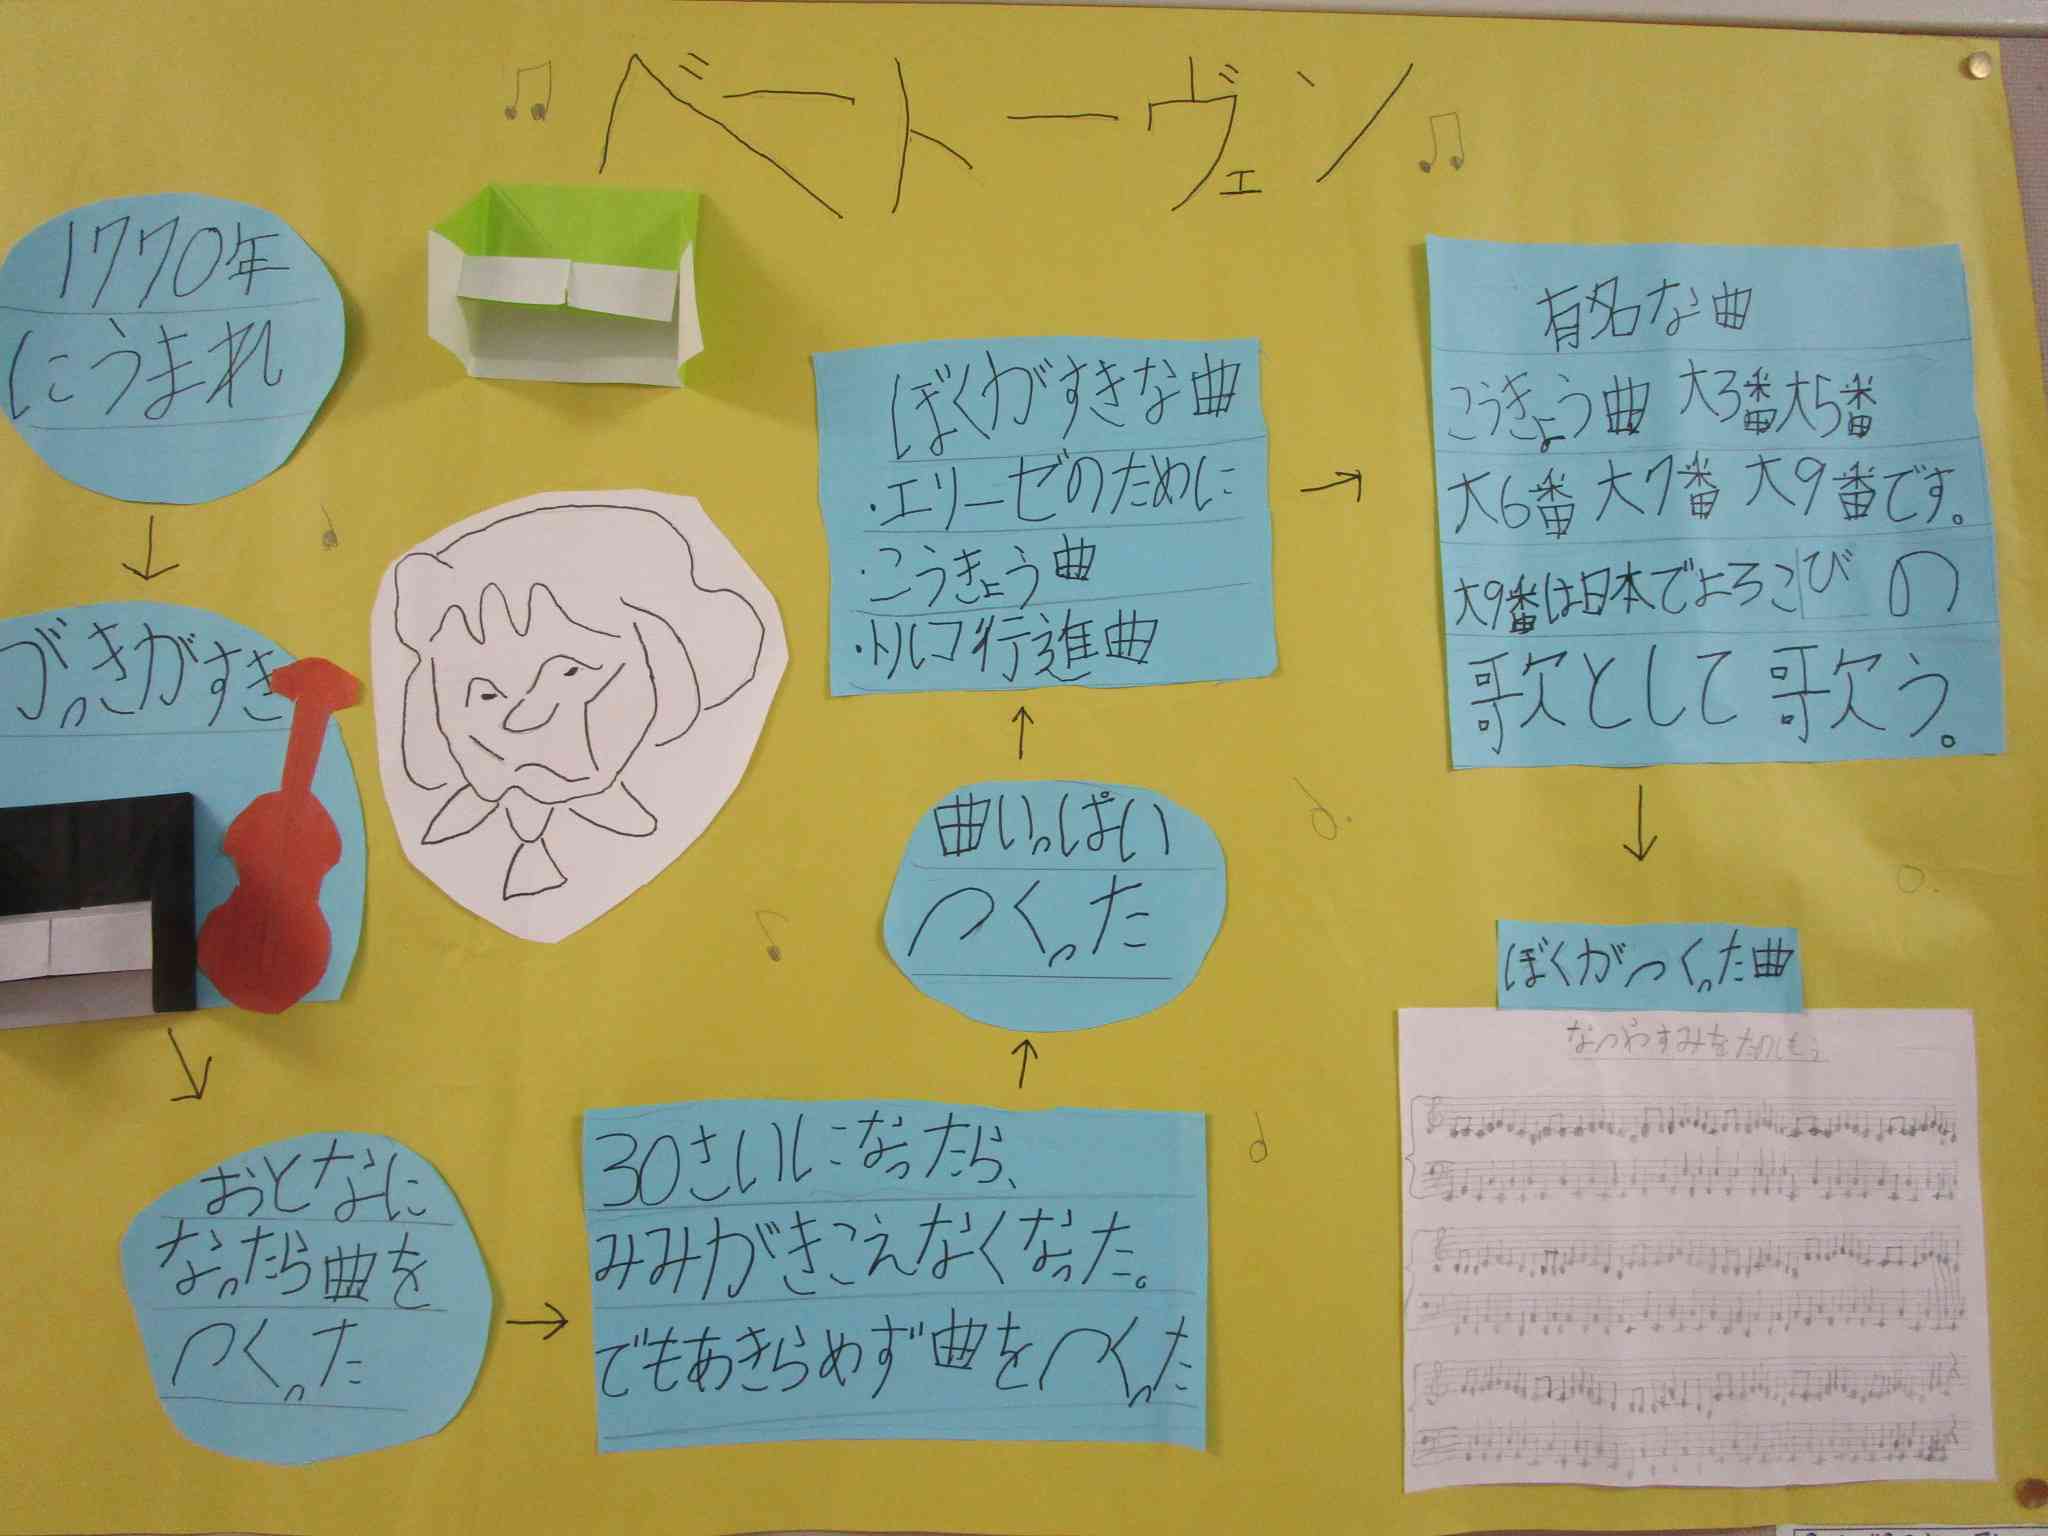 ベートーヴェン
1770年
にうまれ
がっきがすき
おとなに
なったら曲を
つくった
30さいになったら、
みみがきこえなくなった。
でもあきらめず曲をつくった
曲いっぱい
つくった
ぼくがすきな曲
・エリーゼのために
・こうきょう曲
・トルコ行進曲
有名な曲
こうきょう曲 大3番大5番
大6番 大7番 大9番です。
大9番は日本でよろこびの
歌として歌う。
ぼくがつくった曲
なつやすみをたのしもう